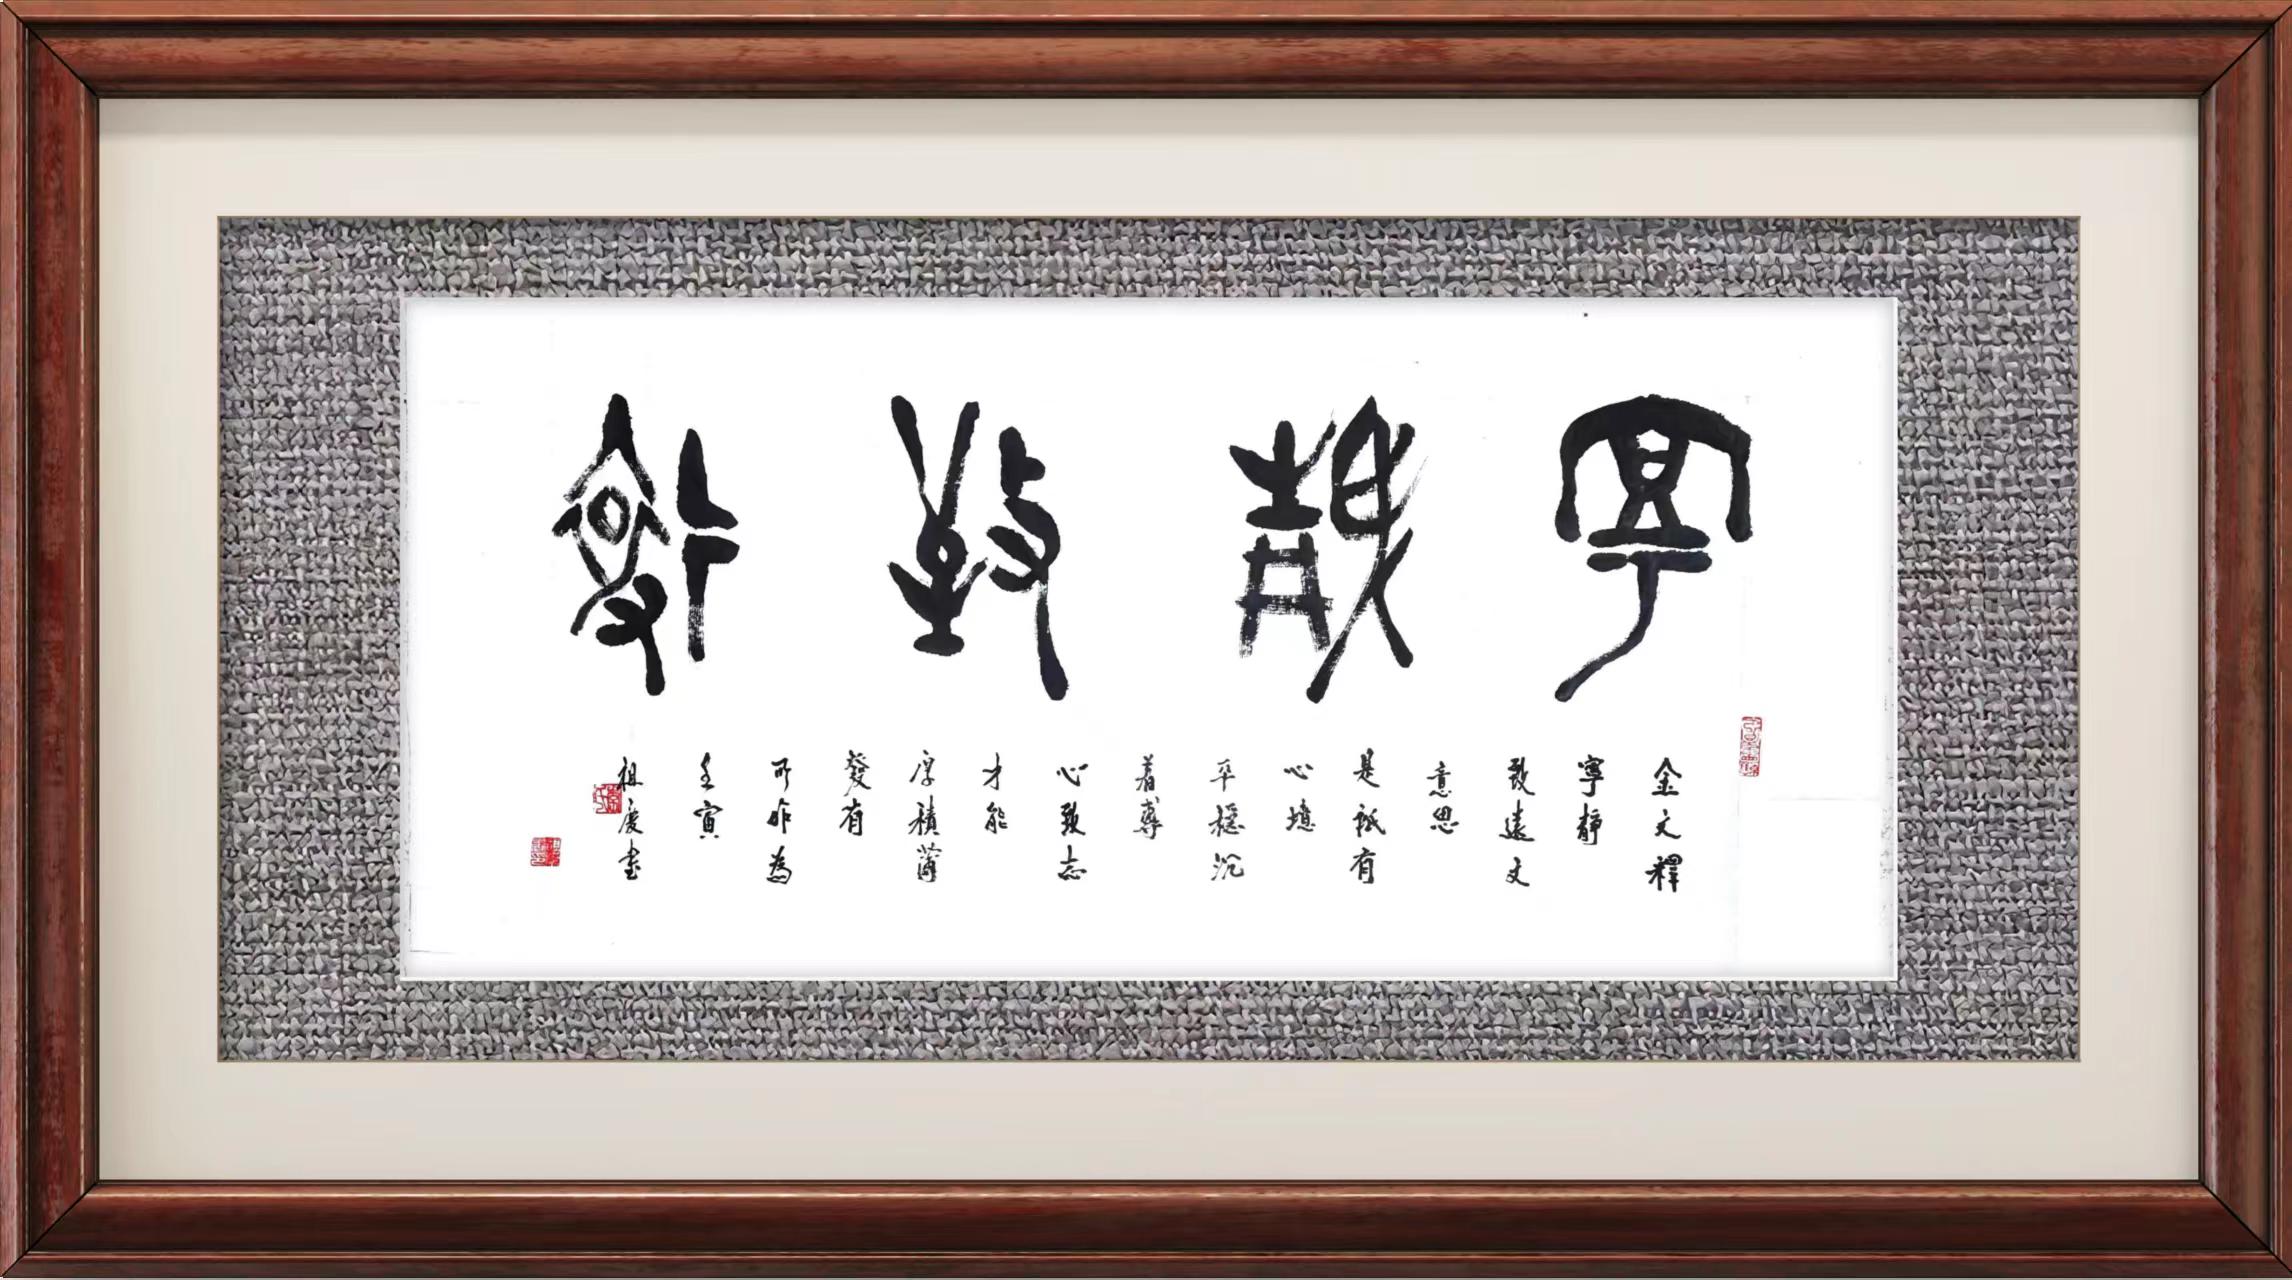 寧靜致遠
金文釋
寧靜
致遠文
意思
是祇有
心境
平穩沉
着專
心致志
才能
厚積薄
發有
所作為
壬寅
祖慶書